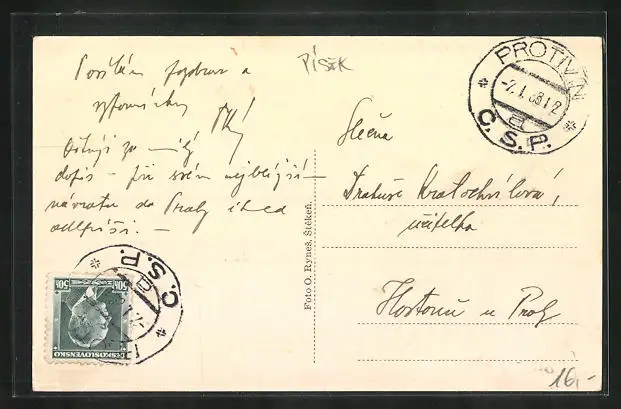 Posílám pozdrav a
vzpomínky
Děkuji za milý
dopis – při svém nejbližší
návratu do Prahy ihned
odepíši. –
PÍSEK
PROTIVÍN
-2.1.38 12
a
Č.S.P.
Slečna
Kratochvílová,
učitelka
Hostouň u Prahy
Foto O. Ryneš, Štěkeň.
Č.S.P.
50h 50h
ČESKOSLOVENSKO
16,-